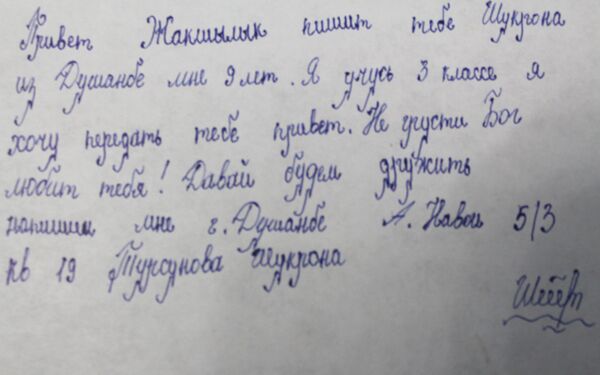 Привет Жакшылык пишит тебе Шукрона
из Душанбе мне 9 лет. Я учусь 3 классе я
хочу передать тебе привет. Не грусти Бог
любит тебя! Давай будем дружить
напишии мне г. Душанбе А. Навои 5/3
кв 19 Турсунова Шукрона